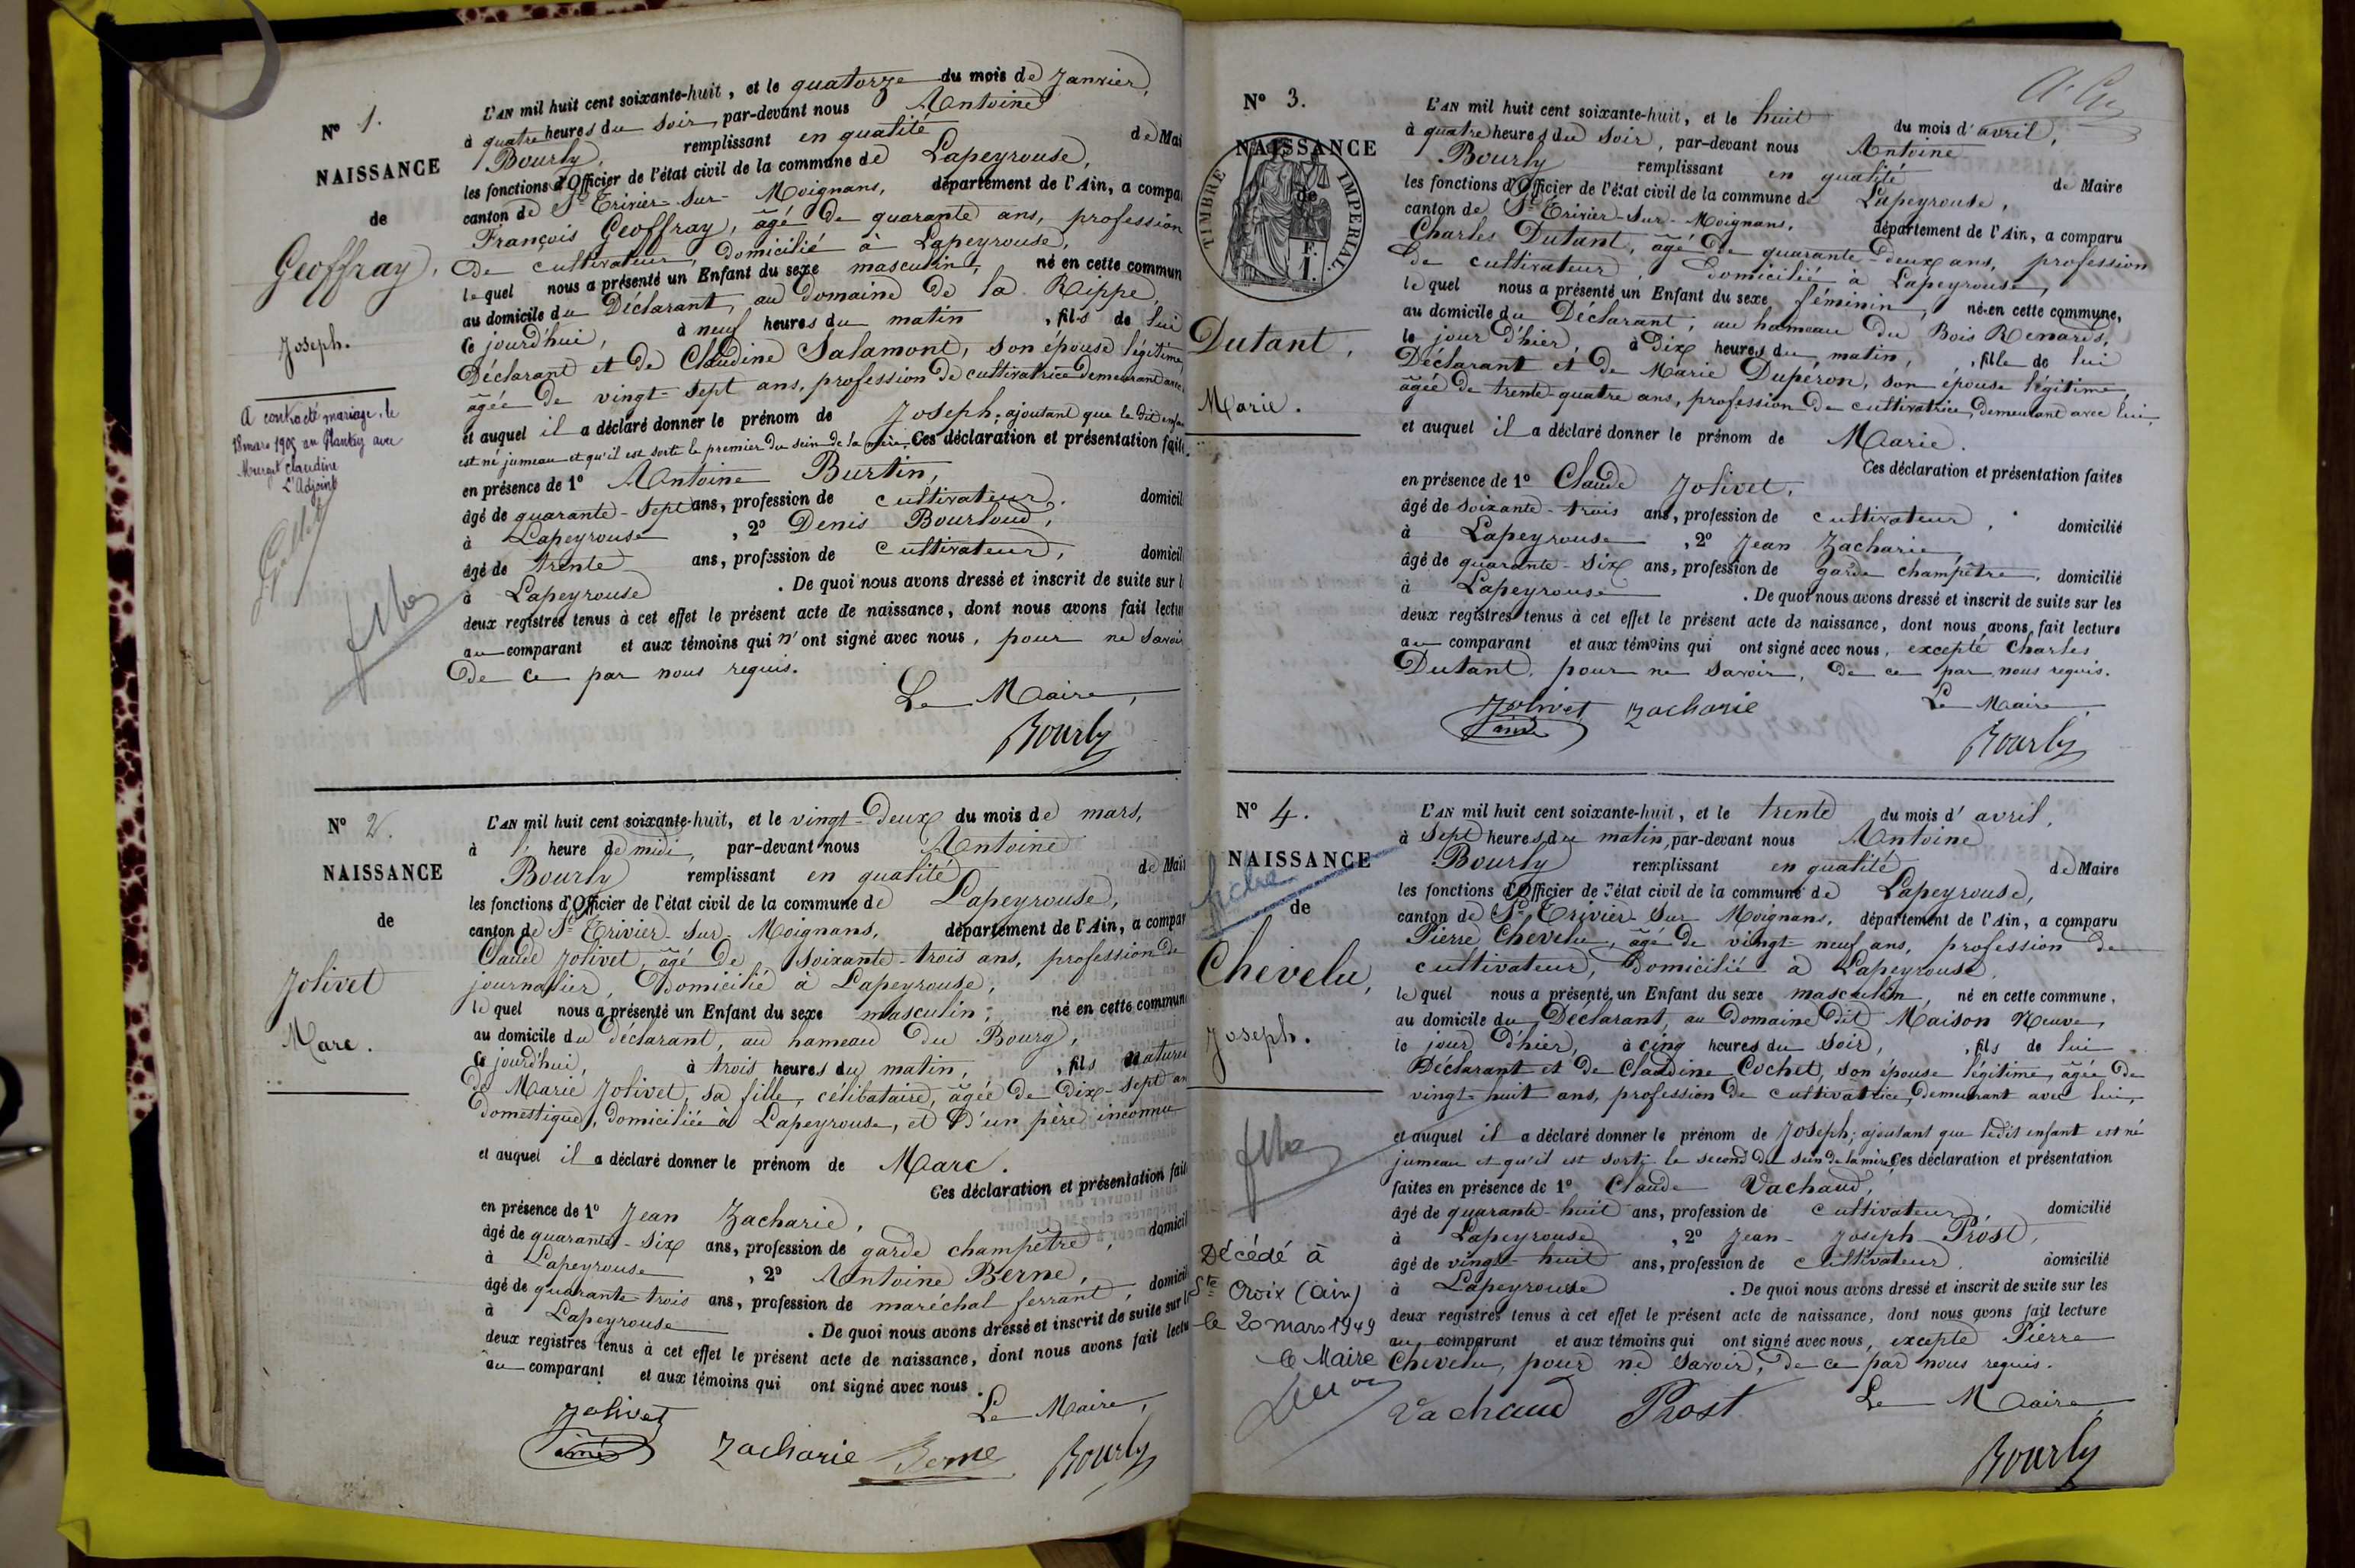 N° 1.
NAISSANCE
de
Geoffray,
Joseph.
A contracté mariage le
18 mars 1905 au Plantay avec
Claudine
L'Adjoint
L'AN mil huit cent soixante-huit, et le quatorze du mois de Janvier,
à quatre heures du soir, par-devant nous Antoine
Bourly, remplissant en qualité de Mai
les fonctions d'Officier de l'état civil de la commune de Lapeyrouse,
canton de St Trivier-sur-Moignans, département de l'Ain, a compa
François Geoffray, âgé de quarante ans, profession
de cultivateur, domicilié à Lapeyrouse,
lequel nous a présenté un Enfant du sexe masculin, né en cette commun
au domicile du Déclarant, au domaine de la Reppe,
ce jourd'hui, à neuf heures du matin, fils de lui
Déclarant et de Claudine Salamont, son épouse légitime,
âgée de vingt-sept ans, profession de cultivatrice demeurant avec
et auquel il a déclaré donner le prénom de Joseph, ajoutant que le dit enfan
est né jumeau et qu'il est sorti le premier du sein de la mère. Ces déclaration et présentation faite
en présence de 1° Antoine Burtin,
âgé de quarante-sept ans, profession de cultivateur, domicil
à Lapeyrouse, 2° Denis Bourloud,
âgé de trente ans, profession de cultivateur, domicil
à Lapeyrouse. De quoi nous avons dressé et inscrit de suite sur l
deux registres tenus à cet effet le présent acte de naissance, dont nous avons fait lectur
au comparant et aux témoins qui n'ont signé avec nous, pour ne savoir
de ce par nous requis.
Le Maire,
Bourly
N° 2.
NAISSANCE
de
Jolivet
Marc.
L'AN mil huit cent soixante-huit, et le vingt-deux du mois de mars,
à l' heure de midi, par-devant nous Antoine
Bourly remplissant en qualité de Mair
les fonctions d'Officier de l'état civil de la commune de Lapeyrouse,
canton de St Trivier-sur-Moignans, département de l'Ain, a compar
Claude Jolivet, âgé de soixante-trois ans, profession de
journalier, domicilié à Lapeyrouse,
lequel nous a présenté un Enfant du sexe masculin, né en cette commun
au domicile du déclarant, au hameau du Bourg,
ce jourd'hui, à trois heures du matin, fils nature
de Marie Jolivet, sa fille, célibataire, âgée de dix-sept an
domestique, domiciliée à Lapeyrouse, et d'un père inconnu
et auquel il a déclaré donner le prénom de Marc.
Ces déclaration et présentation fait
en présence de 1° Jean Zacharie,
âgé de quarante-six ans, profession de garde champêtre, domicil
à Lapeyrouse, 2° Antoine Berne,
âgé de quarante trois ans, profession de maréchal ferrant, domicil
à Lapeyrouse. De quoi nous avons dressé et inscrit de suite sur l
deux registres tenus à cet effet le présent acte de naissance, dont nous avons fait lectu
au comparant et aux témoins qui ont signé avec nous.
Le Maire,
Jolivet
aîné
Zacharie Berne Bourly
N° 3.
NAISSANCE
de
TIMBRE IMPERIAL
F.
1.
Dutant,
Marie.
L'AN mil huit cent soixante-huit, et le huit du mois d'avril,
à quatre heures du soir, par-devant nous Antoine
Bourly remplissant en qualité de Maire
les fonctions d'Officier de l'état civil de la commune de Lapeyrouse,
canton de St Trivier-sur-Moignans, département de l'Ain, a comparu
Charles Dutant, âgé de quarante-deux ans, profession
de cultivateur, domicilié à Lapeyrouse,
lequel nous a présenté un Enfant du sexe féminin, né en cette commune,
au domicile du Déclarant, au hameau du Bois Renards,
le jour d'hier, à dix heures du matin, fille de lui
Déclarant et de Marie Dupéron, son épouse légitime,
âgée de trente-quatre ans, profession de cultivatrice, demeurant avec lui,
et auquel il a déclaré donner le prénom de Marie.
Ces déclaration et présentation faites
en présence de 1° Claude Jolivet,
âgé de soixante-trois ans, profession de cultivateur, domicilié
à Lapeyrouse, 2° Jean Zacharie,
âgé de quarante-six ans, profession de garde champêtre, domicilié
à Lapeyrouse. De quoi nous avons dressé et inscrit de suite sur les
deux registres tenus à cet effet le présent acte de naissance, dont nous avons fait lecture
au comparant et aux témoins qui ont signé avec nous, excepté Charles
Dutant, pour ne savoir, de ce par nous requis.
Le Maire,
Jolivet
aîné
Zacharie
Bourly
N° 4.
NAISSANCE
de
Chevelu,
Joseph.
Décédé à
Ste Croix (Ain)
le 20 mars 1949
le Maire
L'AN mil huit cent soixante-huit, et le trente du mois d'avril,
à sept heures du matin, par-devant nous Antoine
Bourly remplissant en qualité de Maire
les fonctions d'Officier de l'état civil de la commune de Lapeyrouse,
canton de St Trivier-sur Moignans, département de l'Ain, a comparu
Pierre Chevelu, âgé de vingt-neuf ans, profession de
cultivateur, domicilié à Lapeyrouse,
lequel nous a présenté un Enfant du sexe masculin, né en cette commune,
au domicile du Déclarant, au Domaine dit Maison Neuve,
le jour d'hier, à cinq heures du soir, fils de lui
Déclarant et de Claudine Cochet, son épouse légitime, âgée de
vingt-huit ans, profession de cultivatrice, demeurant avec lui,
et auquel il a déclaré donner le prénom de Joseph; ajoutant que ledit enfant est né
jumeau et qu'il est sorti le second du sein de la mère. Ces déclaration et présentation
faites en présence de 1° Claude Vachaud,
âgé de quarante-huit ans, profession de cultivateur, domicilié
à Lapeyrouse, 2° Jean-Joseph Prost,
âgé de vingt-huit ans, profession de cultivateur, domicilié
à Lapeyrouse. De quoi nous avons dressé et inscrit de suite sur les
deux registres tenus à cet effet le présent acte de naissance, dont nous avons fait lecture
au comparant et aux témoins qui ont signé avec nous, excepté Pierre
Chevelu, pour ne savoir, de ce par nous requis.
Le Maire
Vachaud Prost
Bourly